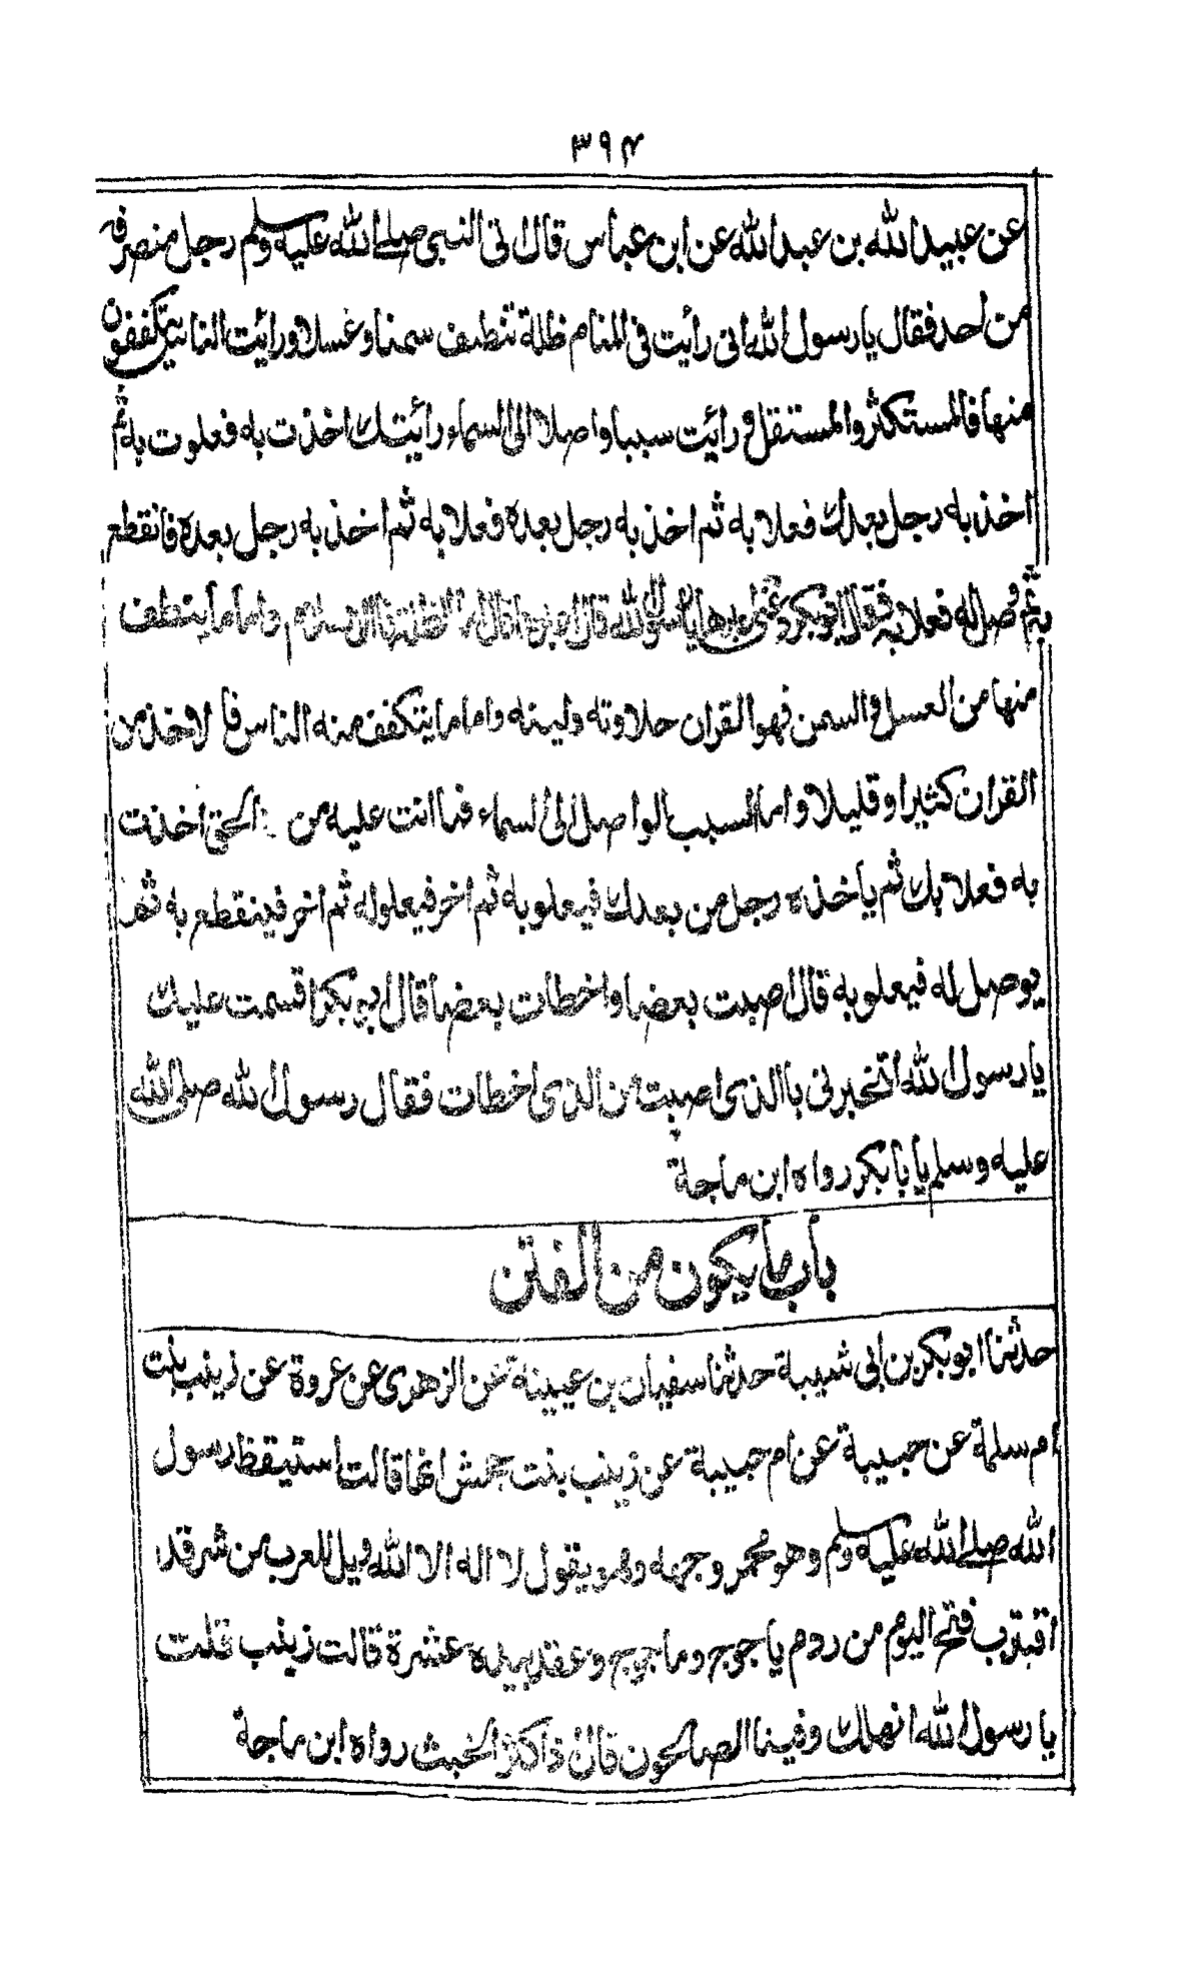 ٣٩٤
عن عبيد الله بن عبد الله عن ابن عباس قال اتى النبى صلى الله عليه وسلم رجل منصرفه
من احد فقال يا رسول الله انى رأيت فى المنام ظلة تنطف سمنا وعسلا ورايت الناس يتكففون
منها فالمستكثر والمستقل ورائيت سببا واصلا الى السماء رائيتك اخذت به فعلوت به ثم
اخذ به رجل بعدك فعلا به ثم اخذ به رجل بعده فعلا به ثم اخذ به رجل بعده فانقطع
به ثم وصل له فعلا به فقال ابو بكر دعنى اعبرها يا رسول الله قال اعبرها قال اما الظلة فالاسلام واما ما ينطف
منها من العسل والسمن فهو القران حلاوته ولينه واما ما يتكفف منه الناس فا لاخذ من
القران كثيرا وقليلا واما السبب الواصل الى السماء فما انت عليه من الحق اخذت
به فعلا بك ثم ياخذه رجل من بعدك فيعلو به ثم اخر فيعلو له ثم اخر فينقطع به ثم
يوصل له فيعلو به قال اصبت بعضا واخطات بعضا قال ابو بكر اقسمت عليك
يا رسول الله اتخبرنى باالذى اصبت من الذى اخطات فقال رسول الله صلى الله
عليه وسلم يا بابكر رواه ابن ماجة
باب ما يكون من الفتن
حدثنا ابو بكر بن ابى شيبة حدثنا سفيان بن عيينة عن الزهرى عن عروة عن زينب بنت
ام سلمة عن حبيبة عن ام حبيبة عن زينب بنت جحش انها قالت استيقظ رسول
الله صلى الله عليه وسلم وهو محمر وجهه وهو يقول لا اله الا الله ويل للعرب من شر قد
اقترب فتح اليوم من ردم ياجوج وماجوج وعقد بيده عشرة قالت زينب قلت
يا رسول الله انهلك وفينا الصالحون قال اذا كثر الخبث رواه ابن ماجة